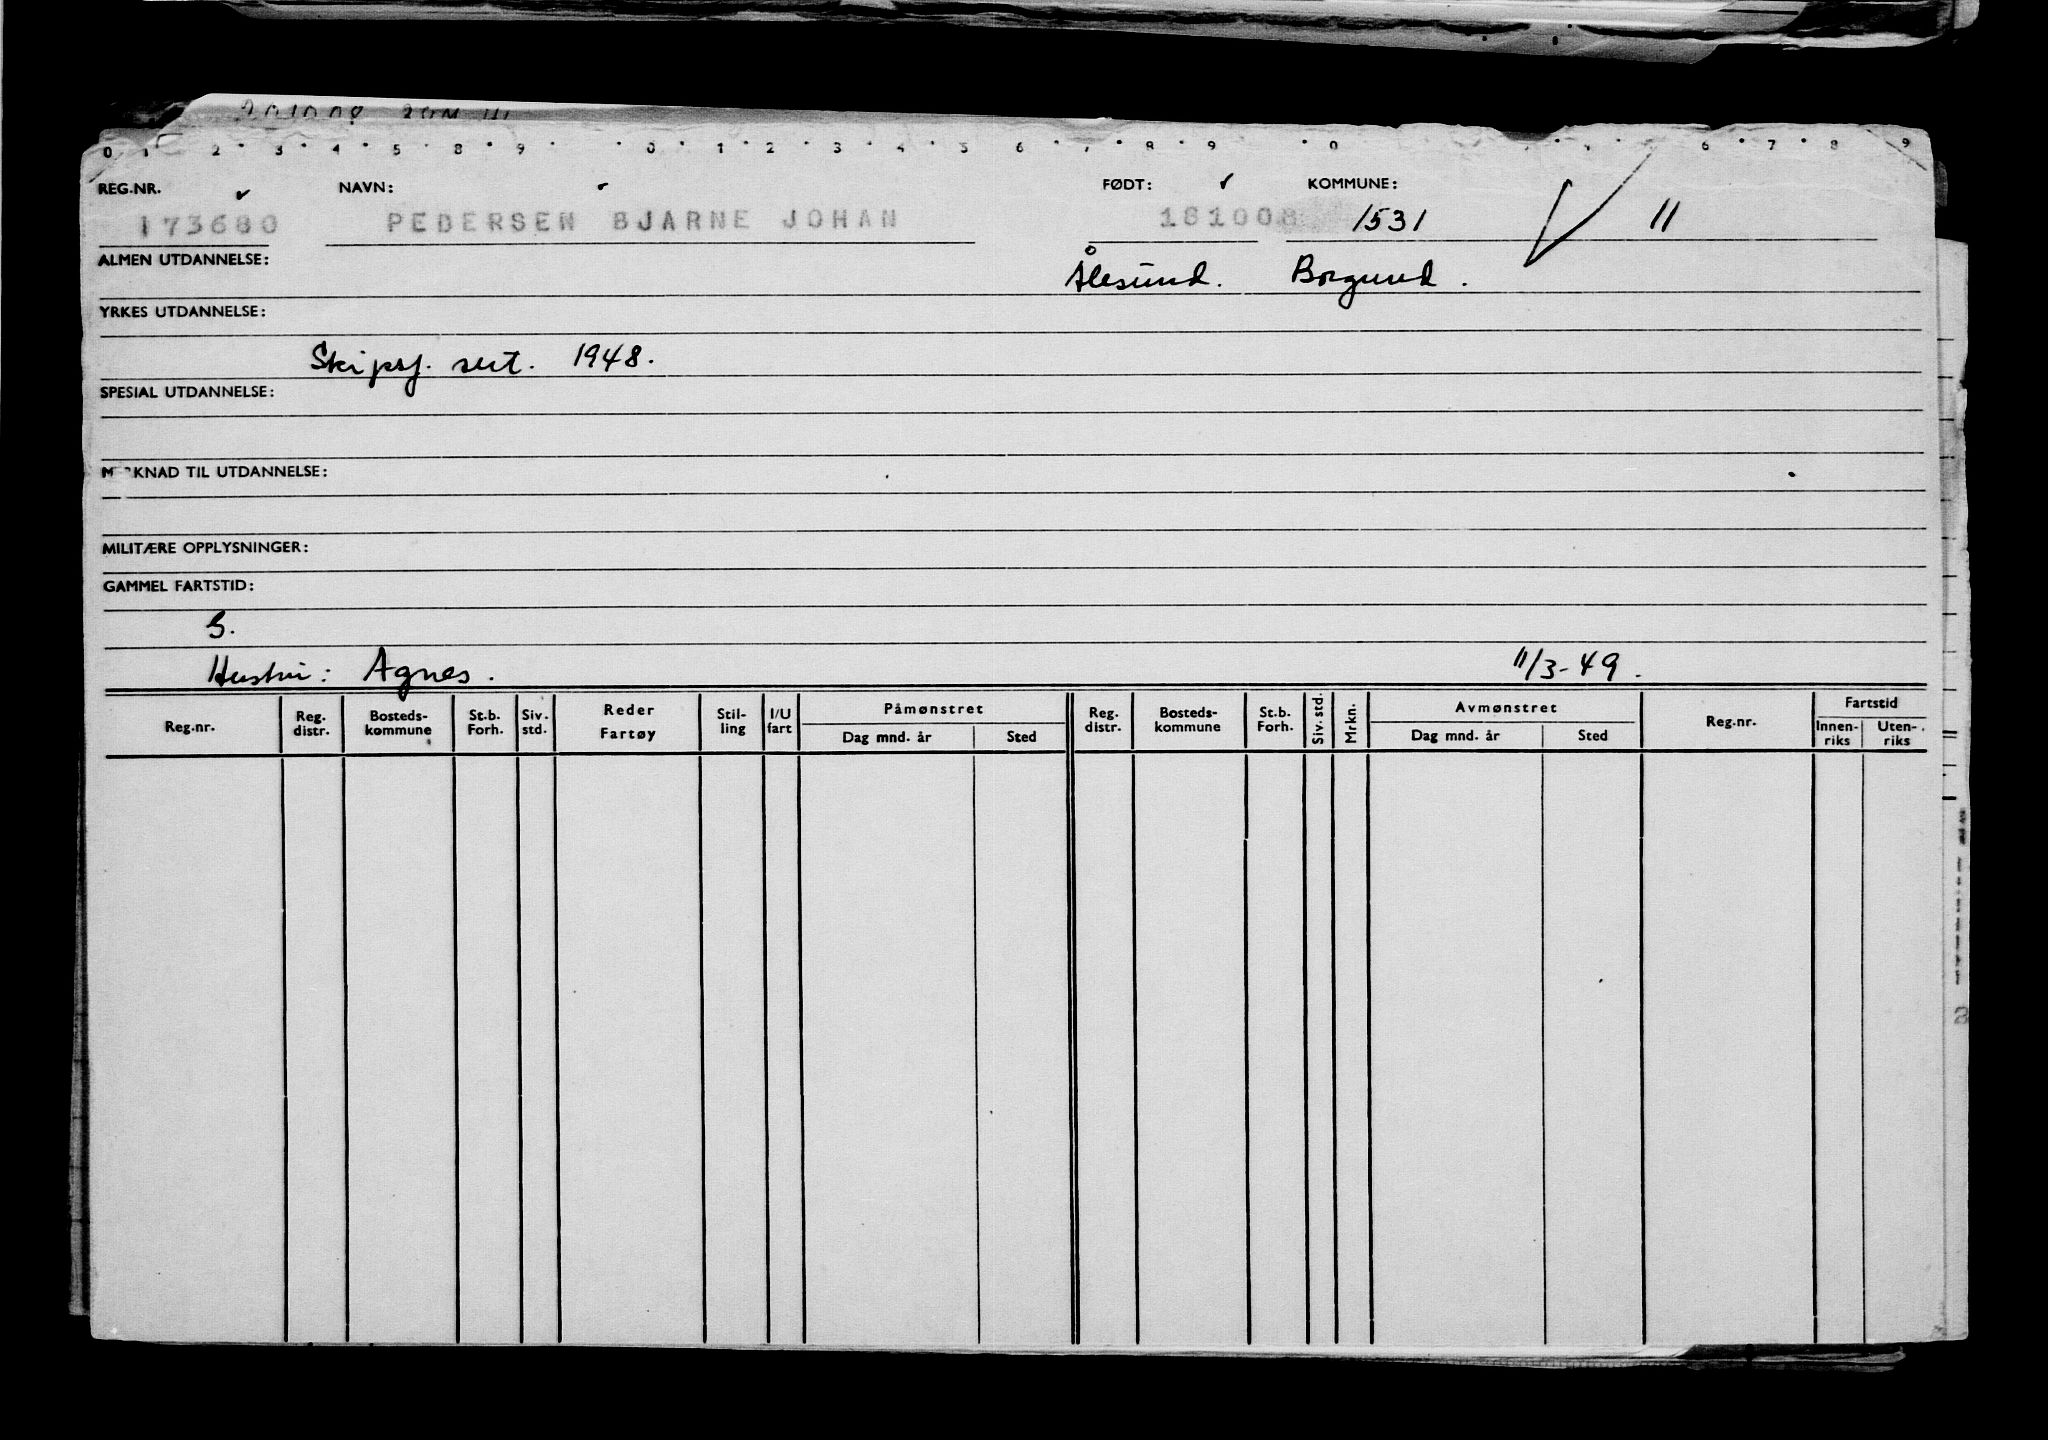 0 1 2 3 4 5 8 9 0 1 2 3 4 5 6 7 8 9 0 6 7 8 9
REG.NR. NAVN: FØDT: KOMMUNE:
173680 PEDERSEN BJARNE JOHAN 181008 1531 11
ALMEN UTDANNELSE: Ålesund. Borgund.
YRKES UTDANNELSE:
Skipsf. sert. 1948.
SPESIAL UTDANNELSE:
M KNAD TIL UTDANNELSE:
MILITÆRE OPPLYSNINGER:
GAMMEL FARTSTID:
G.
Hustru: Agnes. 11/3-49.
Reg.nr. Reg. distr. Bosteds- kommune St.b. Forh. Siv. std. Reder Fartøy Stil- ling I/U fart Påmønstret Dag mnd. år Sted Reg. distr. Bosteds- kommune St.b. Forh. Siv. std. Mrkn. Avmønstret Dag mnd. år Sted Reg.nr. Fartstid Innen- riks Uten- riks